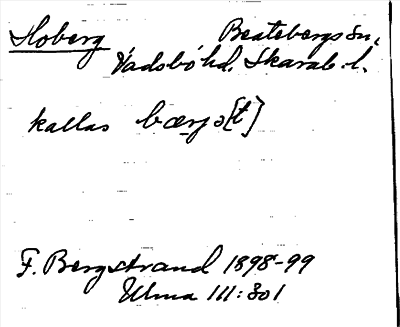 Hoberg Beatebergs sn.
Vadsbo hd. Skarab. l.
kallas bærjə[t]
F. Bergstrand 1898-99
Ulma 111:301